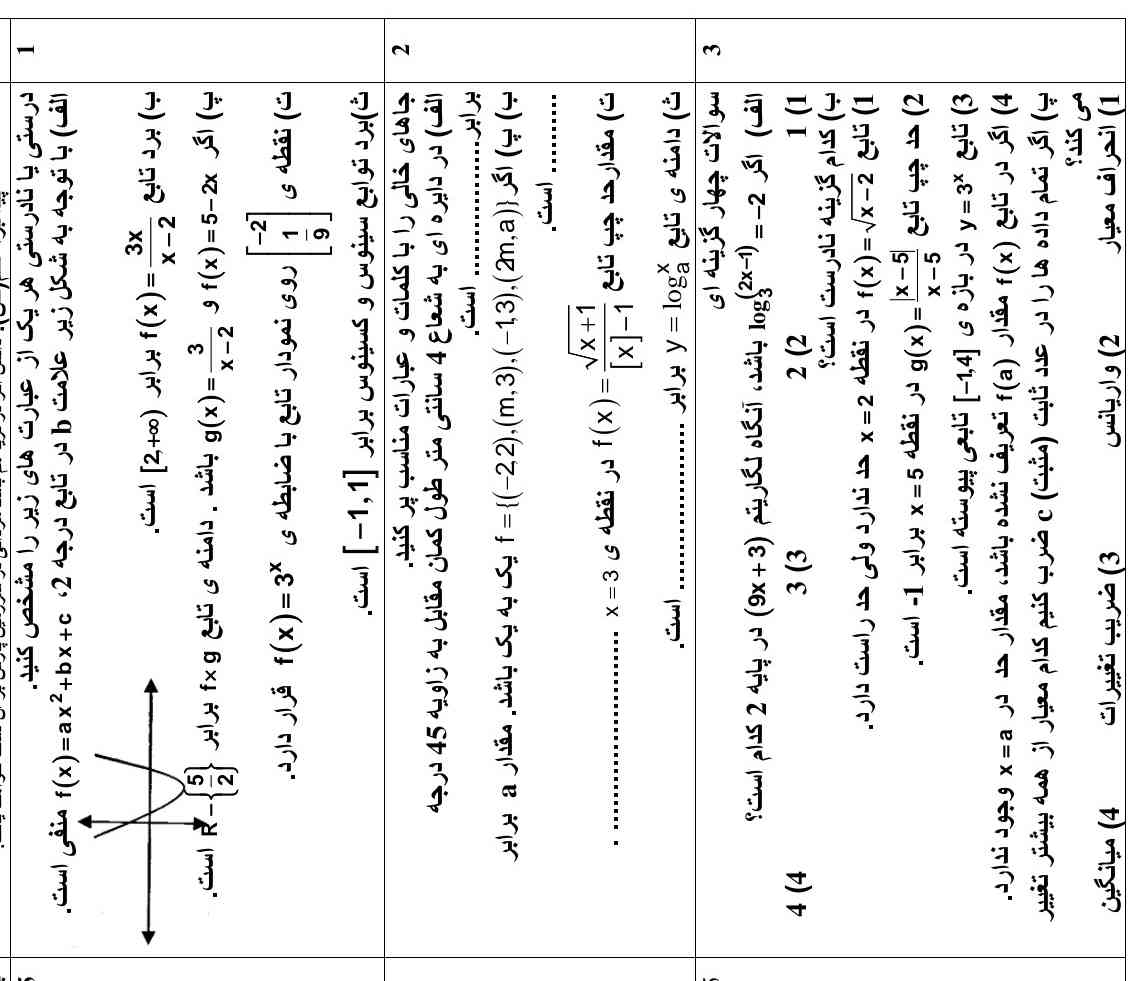 1
درستی یا نادرستی هر یک از عبارت های زیر را مشخص کنید.
الف) با توجه به شکل زیر علامت b در تابع درجه 2، f(x)=ax²+bx+c منفی است.
ب) برد تابع f(x)=3x/(x−2) برابر [2,+∞) است.
پ) اگر f(x)=5−2x و g(x)=3/(x−2) باشد . دامنه ی تابع f×g برابر R−{5/2} است.
ت) نقطه ی [−2 1/9] روی نمودار تابع با ضابطه ی f(x)=3ˣ قرار دارد.
ث)برد توابع سینوس و کسینوس برابر [−1,1] است.
2
جاهای خالی را با کلمات و عبارات مناسب پر کنید.
الف) در دایره ای به شعاع 4 سانتی متر طول کمان مقابل به زاویه 45 درجه
برابر.................. است.
ب) پ) اگر f={(−2,2),(m,3),(−1,3),(2m,a)} یک به یک باشد. مقدار a برابر
........... است.
ت) مقدارحد چپ تابع f(x)=√(x+1)/([x]−1) در نقطه ی x=3 ..............................
ث) دامنه ی تابع y=logₐˣ برابر ...................... است.
3
سوالات چهار گزینه ای
الف) اگر log₃^(2x−1)=−2 باشد، آنگاه لگاریتم (9x+3) در پایه 2 کدام است؟
1) 1 2) 2 3) 3 4) 4
ب) کدام گزینه نادرست است؟
1) تابع f(x)=√(x−2) در نقطه x=2 حد ندارد ولی حد راست دارد.
2) حد چپ تابع g(x)=|x−5|/(x−5) در نقطه x=5 برابر 1- است.
3) تابع y=3ˣ در بازه ی [−1,4] تابعی پیوسته است.
4) اگر در تابع f(x) مقدار f(a) تعریف نشده باشد، مقدار حد در x=a وجود ندارد.
پ) اگر تمام داده ها را در عدد ثابت (مثبت) c ضرب کنیم کدام معیار از همه بیشتر تغییر
می کند؟
1) انحراف معیار 2) واریانس 3) ضریب تغییرات 4) میانگین